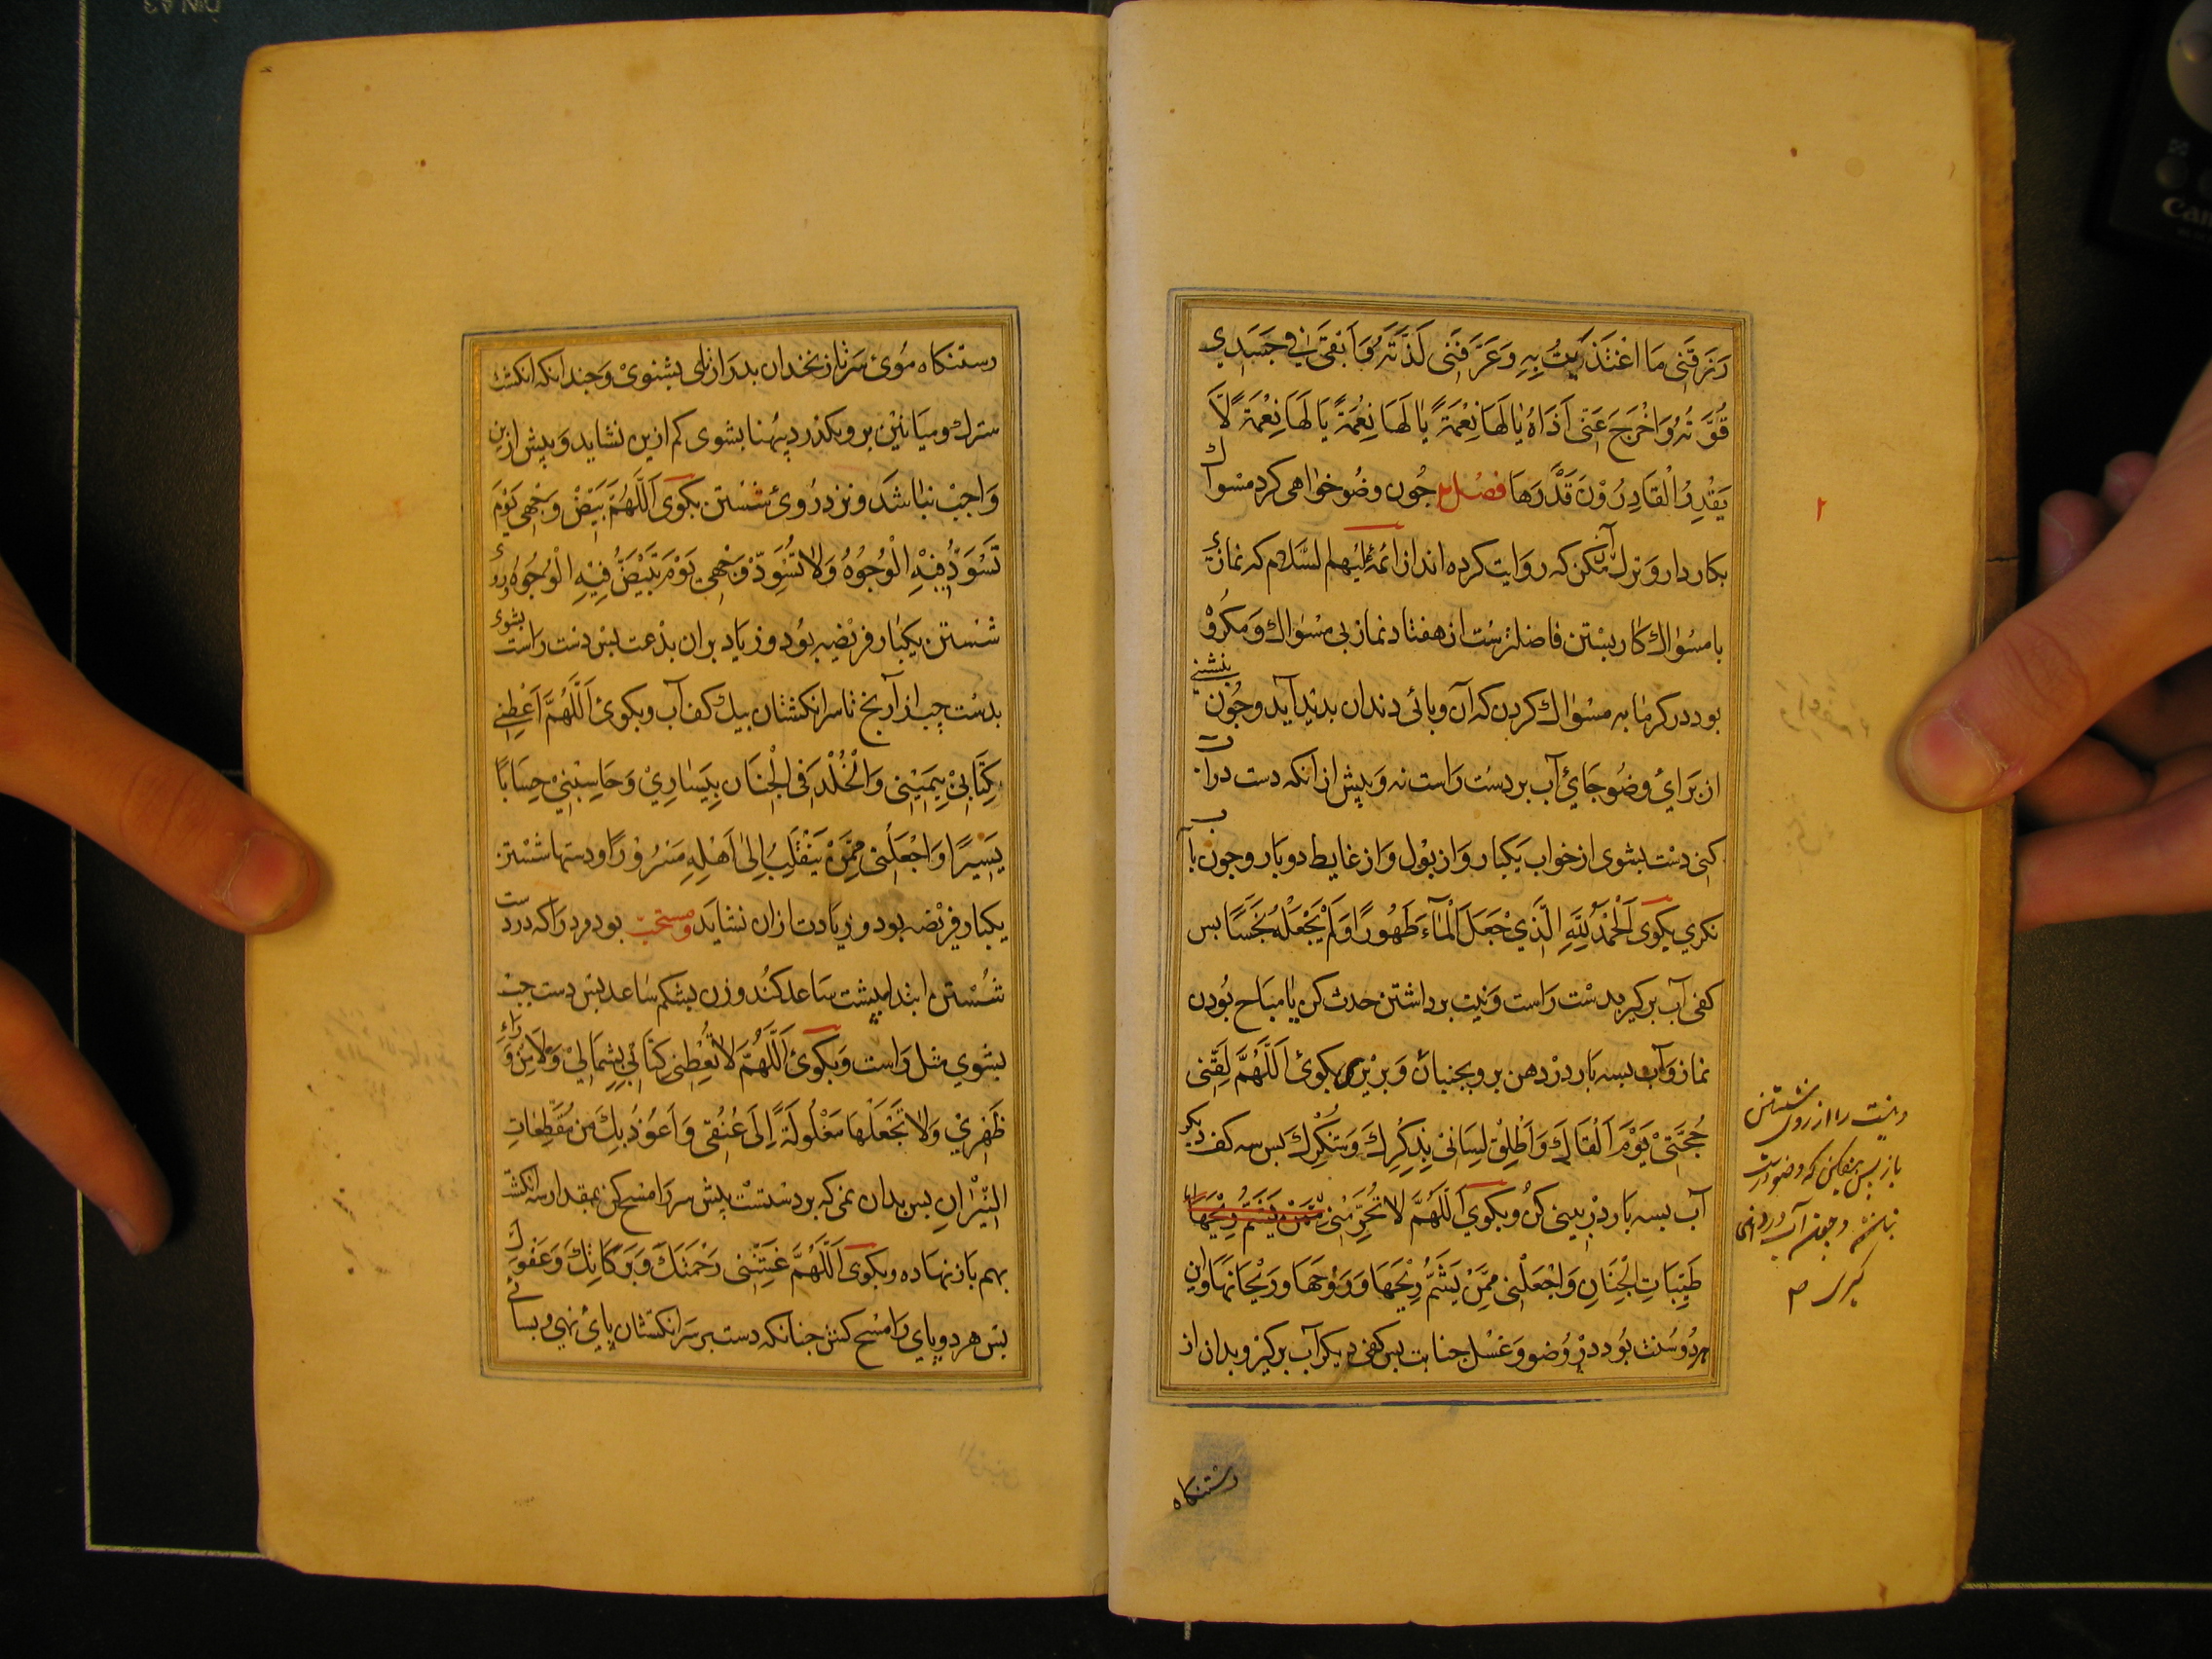 رَزَقَنِی مَا اغْتَذَیْتُ بِهِ وَعَرَّفَنِی لَذَّتَهُ وَاَبْقَی فِی جَسَدِی
قُوَّتَهُ وَاَخْرَجَ عَنِّی اَذَاهُ یَا لَهَا نِعْمَةً یَا لَهَا نِعْمَةً یَا لَهَا نِعْمَةً لَا
یَقْدِرُ الْقَادِرُوْنَ قَدْرَهَا فصل جون وضو خواهی کرد مسواک
بکار دار و ترک آن مکن که روایت کرده اند از ائمه علیهم السلام که نمازی
با مسواک کار بستن فاضلترست از هفتاد نماز بی مسواک و مکروه
بود در کرمابه مسواک کردن که آن وبائی دندان بدید آید و جون بنشینی
از برای وضو جای آب بر دست راست نه و بیش از انکه دست در آب
کنی دست بشوی از خواب یکبار و از بول و از غایط دوبار و جون بآب
نکری بکوی اَلْحَمْدُ لِلّٰهِ الَّذِیْ جَعَلَ الْمَآءَ طَهُورًا وَلَمْ یَجْعَلْهُ نَجَسًا بس
کفی آب برکیر بدست راست و نیت برداشتن حدث کن یا مباح بودن
نماز و آب بسه بار در دهن بر و بجنبان و بریز و بکوی اَللّٰهُمَّ لَقِّنِی
حُجَّتِیْ یَوْمَ اَلْقَاکَ وَاَطْلِقْ لِسَانِیْ بِذِکْرِکَ وَشُکْرِکَ بس سه کف دیکر
آب بسه بار در بینی کن و بکوی اَللّٰهُمَّ لَا تُحَرِّمْنِی
طَیِّبَاتِ الْجِنَانِ وَاجْعَلْنِی مِمَّنْ یَشَمُّ رِیْحَهَا وَرَوْحَهَا وَرَیْحَانَهَا و این
هر دو سنت بود در وضو و غسل جنابت بس کفی دیکر آب برکیر و بدان از
رستنکاه
و نیت را از روی شستن
باز پس میفکن که وضو درست
نباشد و جون آب
رستنکاه موی سر تا زنخدان بدرازنای بشوی و جندانکه انکشت
سترک و میانین برو بکذرد بپهنا بشوی کم ازین نشاید و بیش ازین
واجب نباشد و نزد روی شستن بکوی اَللّٰهُمَّ بَیِّضْ وَجْهِی یَوْمَ
تَسْوَدُّ فِیْهِ الْوُجُوْهُ وَلَا تُسَوِّدْ وَجْهِی یَوْمَ تَبْیَضُّ فِیْهِ الْوُجُوْهُ روی
شستن یکبار فریضه بود و زیاد بران بدعت بس دست راست بشوی
بدست جب از آرنج تا سر انکشتان بیک کف آب و بکوی اَللّٰهُمَّ اَعْطِنِی
کِتَابِیْ بِیَمِیْنِی وَالْخُلْدَ فِی الْجِنَانِ بِیَسَارِیْ وَحَاسِبْنِیْ حِسَابًا
یَسِیْرًا وَاجْعَلْنِی مِمَّنْ یَنْقَلِبُ اِلٰی اَهْلِهِ مَسْرُوْرًا و دستها شستن
یکبار فریضه بود و زیادت ازان نشاید و مستحب بود مرد را که در دست
شستن ابتدا بپشت ساعد کند و زن بشکم ساعد بس دست جب
بشوی مثل راست و بکوی اَللّٰهُمَّ لَا تُعْطِنِی کِتَابِیْ بِشِمَالِیْ وَلَا مِنْ وَرَاءِ
ظَهْرِیْ وَلَا تَجْعَلْهَا مَغْلُوْلَةً اِلَی عُنُقِی وَاَعُوْذُ بِکَ مِنْ مُقَطِّعَاتِ
النِّیْرَانِ بس بدان نمی که بر دستست بیش سر را مسح کن بمقدار سه انکشت
بهم باز نهاده و بکوی اَللّٰهُمَّ غَشِّنِی رَحْمَتَکَ وَبَرَکَاتِکَ وَعَفْوَکَ
بس هر دو پای را مسح کش جنانکه دست بر سر انکشتان پای نهی و بسای